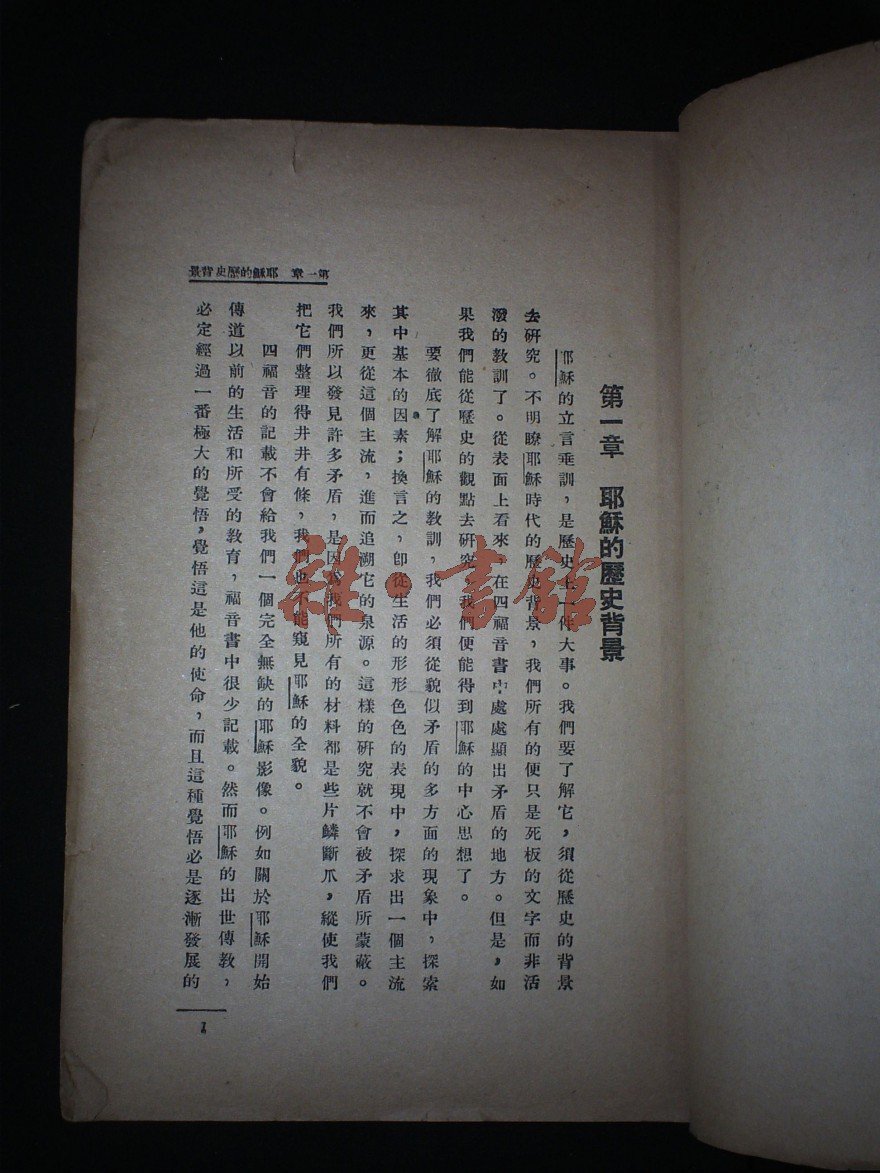 第一章 耶穌的歷史背景
第一章 耶穌的歷史背景
耶穌的立言垂訓，是歷史上一件大事。我們要了解它，須從歷史的背景
去研究。不明瞭耶穌時代的歷史背景，我們所有的便只是死板的文字而非活
潑的教訓了。從表面上看來，在四福音書中處處顯出矛盾的地方。但是，如
果我們能從歷史的觀點去研究，我們便能得到耶穌的中心思想了。
要徹底了解耶穌的教訓，我們必須從貌似矛盾的多方面的現象中，探索
其中基本的因素；換言之，卽從生活的形形色色的表現中，探求出一個主流
來，更從這個主流，進而追溯它的泉源。這樣的研究就不會被矛盾所蒙蔽。
我們所以發見許多矛盾，是因為我們所有的材料都是些片鱗斷爪，縱使我們
把它們整理得井井有條，我們也不能窺見耶穌的全貌。
四福音的記載不會給我們一個完全無缺的耶穌影像。例如關於耶穌開始
傳道以前的生活和所受的教育，福音書中很少記載。然而耶穌的出世傳教，
必定經過一番極大的覺悟，覺悟這是他的使命，而且這種覺悟必是逐漸發展的
1
雜·書館